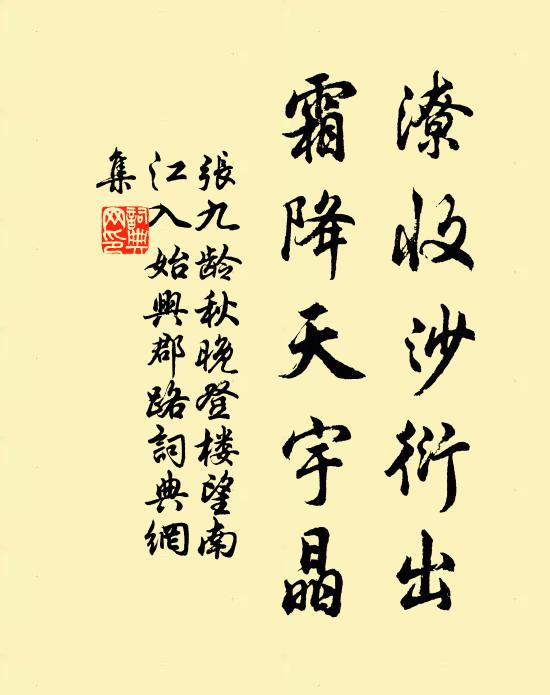 潦收沙衍出
霜降天宇晶
張九龄秋晚登楼望南
江入始興郡路詞典網
集
詞典
网印